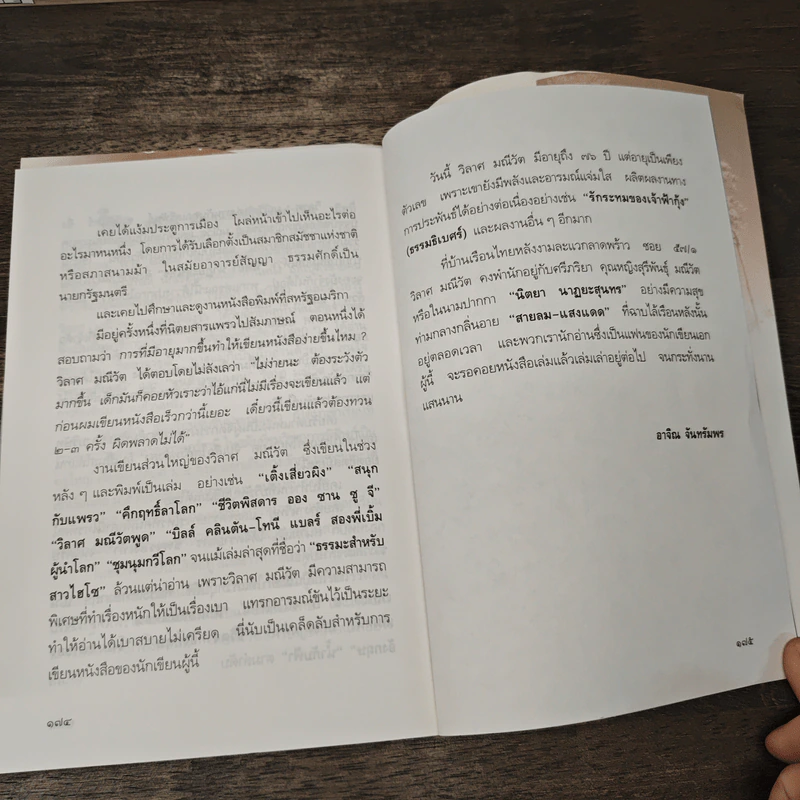 เคยได้แง้มประตูการเมือง โผล่หน้าเข้าไปเห็นอะไรต่อ
อะไรมาหนหนึ่ง โดยการได้รับเลือกตั้งเป็นสมาชิกสมัชชาแห่งชาติ
หรือสภาสนามม้า ในสมัยอาจารย์สัญญา ธรรมศักดิ์เป็น
นายกรัฐมนตรี
และเคยไปศึกษาและดูงานหนังสือพิมพ์ที่สหรัฐอเมริกา
มีอยู่ครั้งหนึ่งที่นิตยสารแพรวไปสัมภาษณ์ ตอนหนึ่งได้
สอบถามว่า การที่มีอายุมากขึ้นทำให้เขียนหนังสือง่ายขึ้นไหม ?
วิลาศ มณีวัต ได้ตอบโดยไม่ลังเลว่า “ไม่ง่ายนะ ต้องระวังตัว
มากขึ้น เด็กมันก็คอยหัวเราะว่าไอ้แก่นี่ไม่มีเรื่องจะเขียนแล้ว แต่
ก่อนผมเขียนหนังสือเร็วกว่านี้เยอะ เดี๋ยวนี้เขียนแล้วต้องทวน
๒-๓ ครั้ง ผิดพลาดไม่ได้”
งานเขียนส่วนใหญ่ของวิลาศ มณีวัต ซึ่งเขียนในช่วง
หลัง ๆ และพิมพ์เป็นเล่ม อย่างเช่น “เติ้งเสี่ยวผิง” “สนุก
กับแพรว” “คึกฤทธิ์ลาโลก” “ชีวิตพิสดาร ออง ซาน ซู จี”
“วิลาศ มณีวัตพูด” “บิลล์ คลินตัน-โทนี แบลร์ สองพี่เบิ้ม
ผู้นำโลก” “ชุมนุมกวีโลก” จนแม้เล่มล่าสุดที่ชื่อว่า “ธรรมะสำหรับ
สาวไฮโซ” ล้วนแต่น่าอ่าน เพราะวิลาศ มณีวัต มีความสามารถ
พิเศษที่ทำเรื่องหนักให้เป็นเรื่องเบา แทรกอารมณ์ขันไว้เป็นระยะ
ทำให้อ่านได้เบาสบายไม่เครียด นี่นับเป็นเคล็ดลับสำหรับการ
เขียนหนังสือของนักเขียนผู้นี้
๑๗๔
วันนี้ วิลาศ มณีวัต มีอายุถึง ๗๖ ปี แต่อายุเป็นเพียง
ตัวเลข เพราะเขายังมีพลังและอารมณ์แจ่มใส ผลิตผลงานทาง
การประพันธ์ได้อย่างต่อเนื่องอย่างเช่น “รักระทมของเจ้าฟ้ากุ้ง”
(ธรรมธิเบศร์) และผลงานอื่น ๆ อีกมาก
ที่บ้านเรือนไทยหลังงามละแวกลาดพร้าว ซอย ๕๗/๑
วิลาศ มณีวัต คงพำนักอยู่กับศรีภริยา คุณหญิงสุรีพันธุ์ มณีวัต
หรือในนามปากกา “นิตยา นาฏยะสุนทร” อย่างมีความสุข
ท่ามกลางกลิ่นอาย “สายลม-แสงแดด” ที่ฉาบไล้เรือนหลังนั้น
อยู่ตลอดเวลา และพวกเรานักอ่านซึ่งเป็นแฟนของนักเขียนเอก
ผู้นี้ จะรอคอยหนังสือเล่มแล้วเล่มเล่าอยู่ต่อไป จนกระทั่งนาน
แสนนาน
อาจิณ จันทรัมพร
๑๗๕